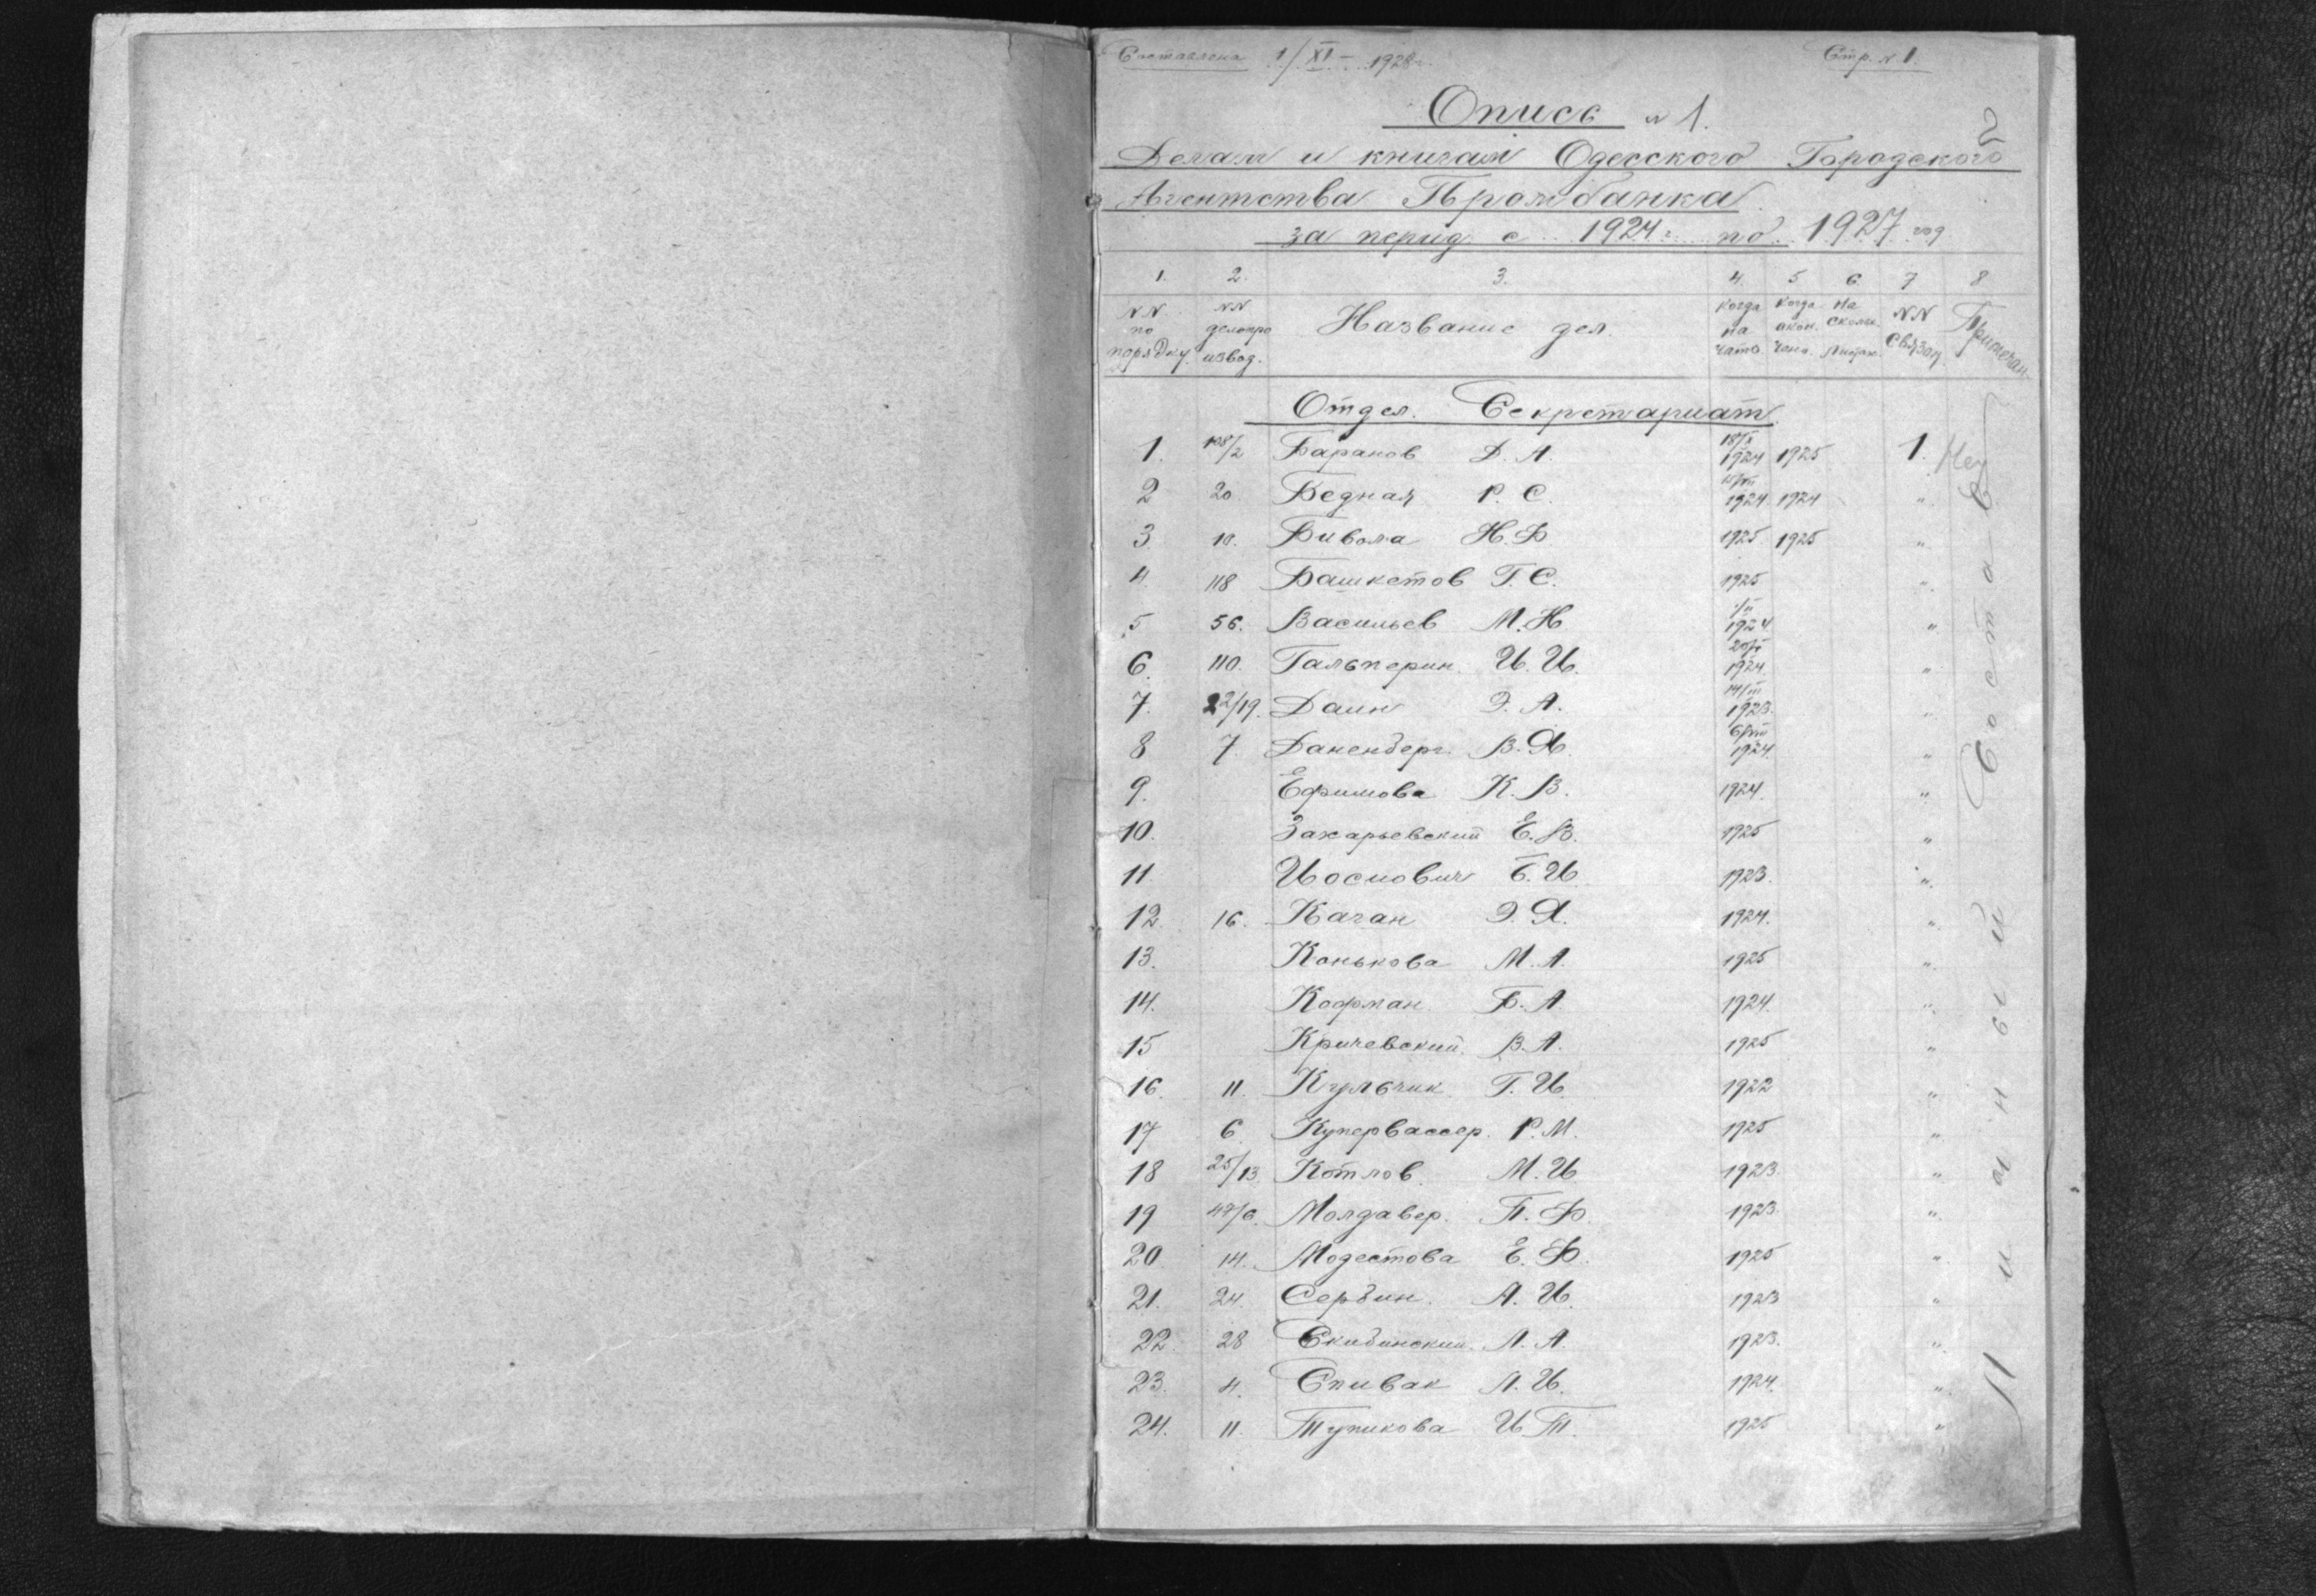 Составлена 1/XI – 1928 г. Стр. № 1.
2
Опись № 1.
Делам и книгам Одесского Городского
Агентства Промбанка
за период с 1924 г. по 1927 год
1. 2. 3. 4. 5 6. 7 8
NN по порядку. NN делопроизвод. Название дел. Когда начато. Когда окон. На скольк. NN Связок Примечан.
Отдел. Секретариат
1. 108/2 Баранов Д. А. 18/X 1924 1925 1.
2 20 Бедная Р. С. 1924. 1924 "
3. 10. Бивола Н. Ф. 1925 1925 "
4. 118 Башкетов Г. С. 1925 "
5 56. Васильев М. Н 1924 "
6. 110. Гальперин. И. И. 1924 "
7. 22/19. Даин Э. А. 14/III 1923. "
8 7. Даненберг. В. Я. 1924. "
9. Ефимова К. В. 1924. "
10. Захарьевский Е. В. 1925 "
11 Иоснович Б. И 1923. "
12 16. Каган Э. Я. 1924. "
13. Конькова М. А. 1925 "
14. Кофман Б. А. 1924. "
15 Кричевский. В. А. 1925 "
16. 11. Кульчик Г. И. 1922 "
17 6. Купервассер. Р. М. 1925 "
18 25/13. Котлов. М. И 1923. "
19 47/6. Молдавер. П. Ф. 1923. "
20. 14. Модестова Е. Ф. 1925 "
21. 24. Сербин. А. И. 1923 "
22. 28 Скибинский. А. А. 1923. "
23. 4. Спивак А. И. 1924. "
24. 11. Тупикова И. Т. 1925 "
Личный Состав